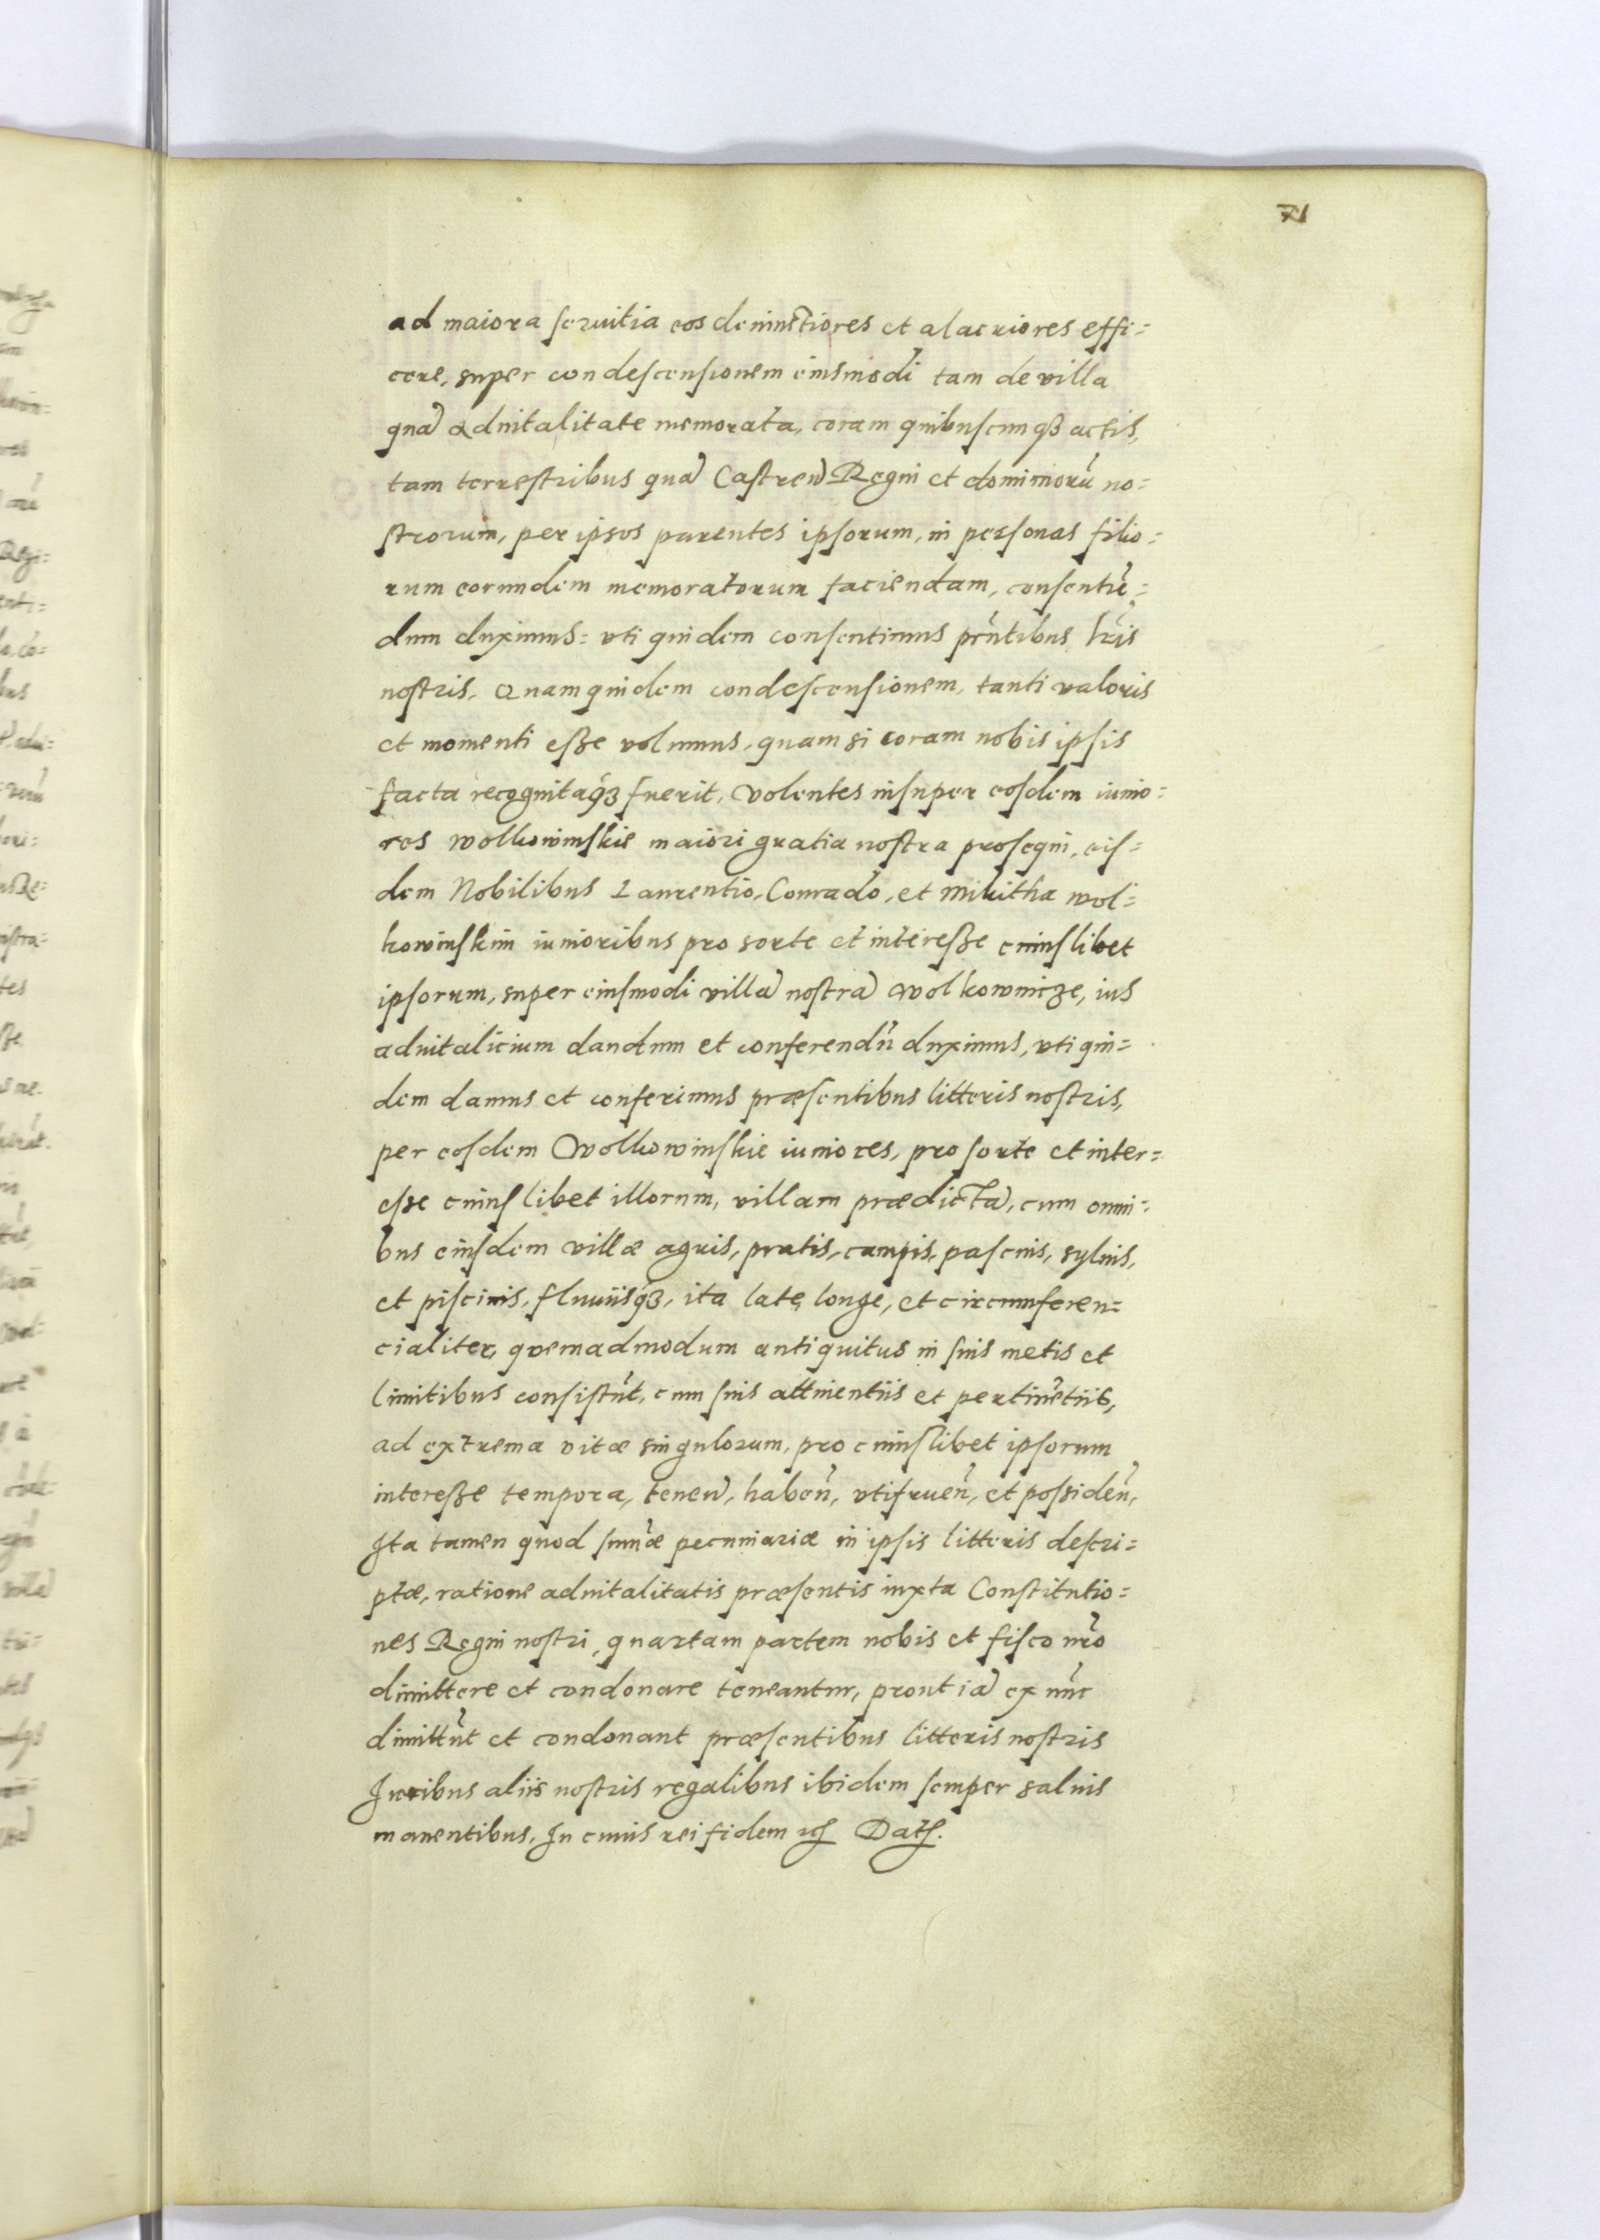 71
ad maiora seruitia eos deuinctiores et alacriores effi=
cere, super condescensionem eiusmodi tam de villa
quā aduitalitate memorata, coram quibuscunqꝫ actis,
tam terrestribus quā Castreñ Regni et dominiorū no=
strorum, per ipsos parentes ipsorum, in personas filio=
rum eorundem memoratorum faciendam, consentiē=
dum duximus= vti quidem consentimus pñtibus lris
nostris. Quam quidem condescensionem, tanti valoris
et momenti esse volumus, quam si coram nobis ipsis
facta recognitaqꝫ fuerit, Volentes insuper eosdem iunio=
res wolkowinskie maiori gratia nostra prosequi, eis=
dem Nobilibus Laurentio, Conrado, et Mikitha wol=
kowinskim iunioribus pro sorte et interesse cuiuslibet
ipsorum, super eiusmodi villā nostrā Wolkowincze, ius
aduitalicium dandum et conferendū duximus, vti qui=
dem damus et conferimus præsentibus litteris nostris,
per eosdem Wolkowinskie iuniores, pro sorte et inter=
esse cuiuslibet illorum, villam prædictā, cum omni=
bus eiusdem villæ agris, pratis, campis, pascuis, syluis,
et piscinis, fluuiisqꝫ, ita late, longe, et circumferen=
cialiter, quemadmodum antiquitus in suis metis et
limitibus consistūt, cum suis attinentiis et pertinētiis,
ad extrema vitæ singulorum, pro cuiuslibet ipsorum
interesse tempora, teneñ, habeñ, vtifrueñ, et possideñ,
Ita tamen quod sum̄æ pecuniariæ in ipsis litteris descri=
ptæ, ratione aduitalitatis præsentis iuxta Constitutio=
nes Regni nostri, quartam partem nobis et fisco nr̄o
dimittere et condonare teneantur, prout iā ex nūc
dimittūt et condonant præsentibus litteris nostris
Iuribus aliis nostris regalibus ibidem semper saluis
manentibus, In cuius rei fidem etc Dat.